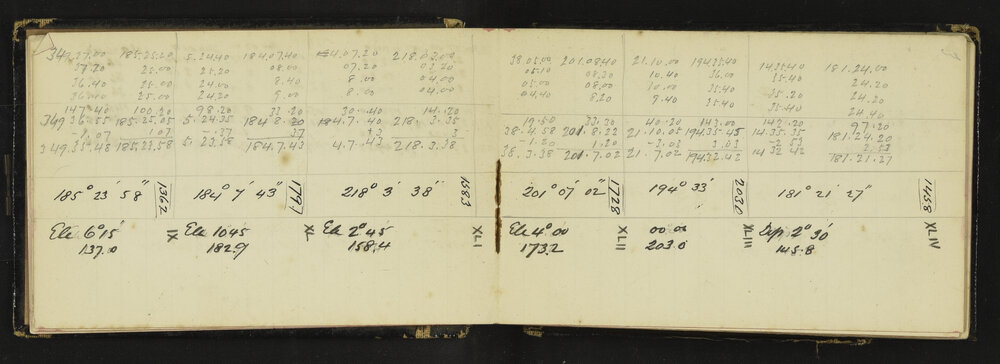 349.37.00 185.25.20 5.24.40 184.07.40 4.07.20 218.03.00
37.20 25.00 25.20 08.00 07.20 03.20
36.40 25.00 24.00 8.40 8.00 04.00
36.00 25.00 24.20 9.00 8.00 04.00
147.40 100.20 98.20 33.20 30.40 14.20
349 36.55 185.25.05 5.24.35 184.8.20 184.7.40 218.3.35
-1.07 1.07 -.37 37 +3 3
349.35.48 185.23.58 5.23.58 184.7.43 4.7.43 218.3.38
185° 23' 58" 1362 184° 7' 43" 1797 218° 3' 38" 1583
Ele 6°15' IX Ele 1045 X Ele 2°45' XLI
137.0 182.9 158.4
38.05.00 201.08.40 21.10.00 194.35.40 14.35.40 181.24.00
05.10 08.20 10.40 36.00 35.40 24.20
05.00 08.00 10.00 35.40 35.20 24.20
04.40 8.20 9.40 35.40 35.40 24.40
19.50 33.20 40.20 143.00 142.20 97.20
38.4.58 201.8.22 21.10.05 194.35.45 14.35.35 181.24.20
-1.20 1.20 -3.03 3.03 -2.53 2.53
38.3.38 201.7.02 21.7.02 194.32.42 14 32 42 181.21.27
201° 07' 02" 1728 194° 33' 2030 181° 21' 27" 1458
Ele 4°00 XLII 00.00 XLIII Dep 2°30' XLIV
173.2 203.0 145.8